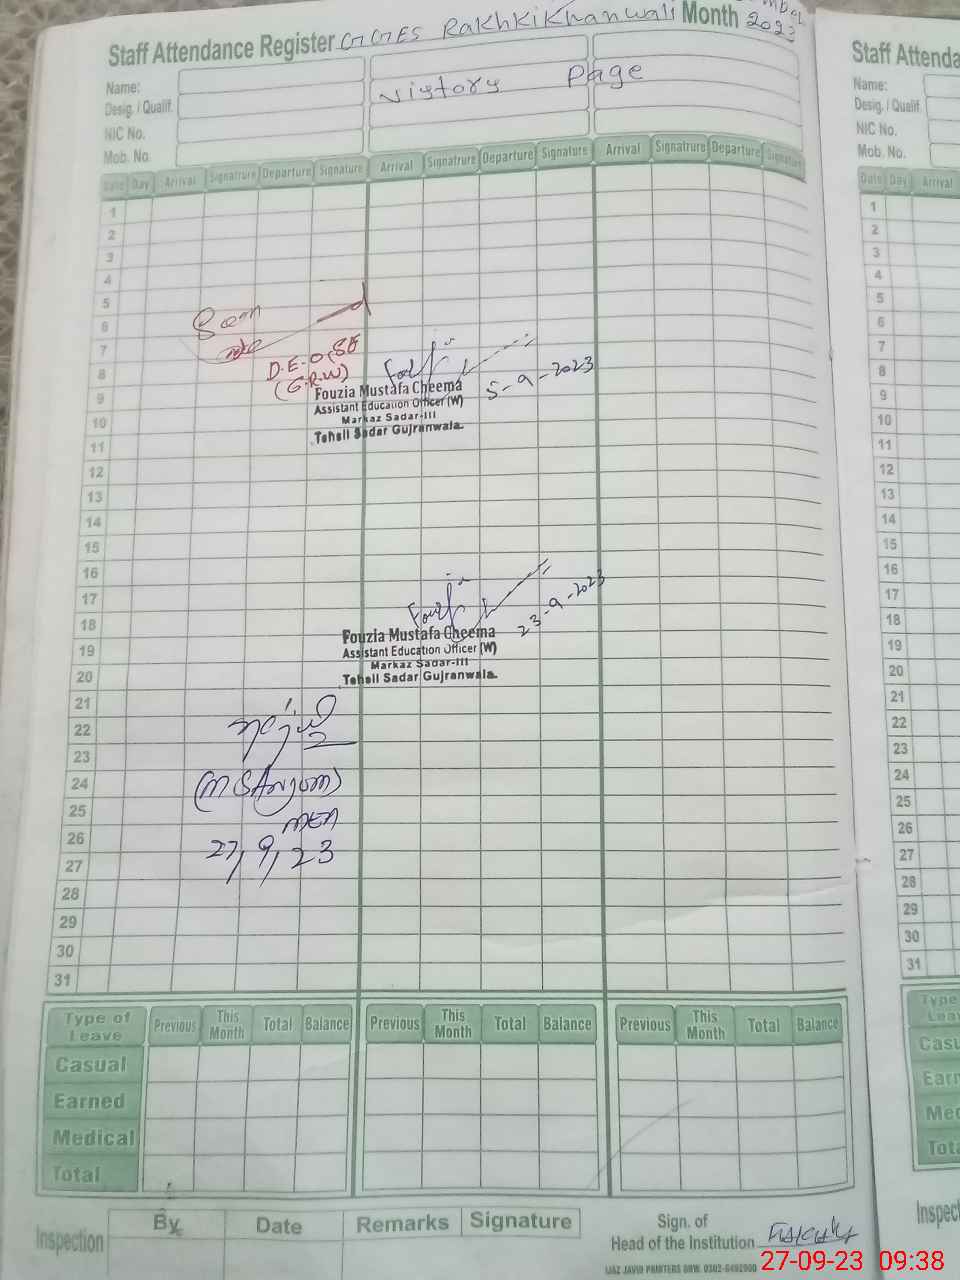 Staff Attendance Register GGES RakhKiKhanwali Month 2023
Name:
Desig. / Qualif.
NIC No.
Mob. No.
vistory Page
Date Day Arrival Signatrure Departure Signature Arrival Signatrure Departure Signature Arrival Signatrure Departure Signature
1
2
3
4
5
6
7
8
9
10
11
12
13
14
15
16
17
18
19
20
21
22
23
24
25
26
27
28
29
30
31
Seen
D.E.O, SE
(G.R.W)
5-9-2023
Fouzia Mustafa Cheema
Assistant Education Officer (W)
Markaz Sadar-III
Tehsil Sadar Gujranwala.
23-9-2023
Fouzia Mustafa Cheema
Assistant Education Officer (W)
Markaz Sadar-III
Tehsil Sadar Gujranwala.
(M S Anjum)
MEA
27, 9, 23
Type of Leave Previous This Month Total Balance Previous This Month Total Balance Previous This Month Total Balance
Casual
Earned
Medical
Total
Inspection By Date Remarks Signature
Sign. of
Head of the Institution
IJAZ JAVID PRINTERS GRW.
27-09-23 09:38
Staff Attenda
Name:
Desig. / Qualif.
NIC No.
Mob. No.
Date Day Arrival
1
2
3
4
5
6
7
8
9
10
11
12
13
14
15
16
17
18
19
20
21
22
23
24
25
26
27
28
29
30
31
Type
Lea
Casu
Earn
Med
Tota
Inspect